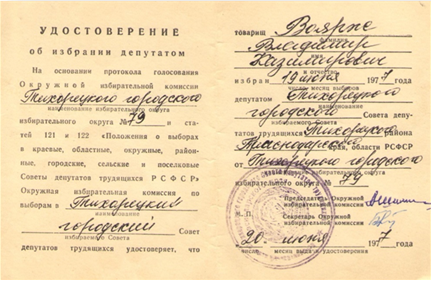 УДОСТОВЕРЕНИЕ
об избрании депутатом
На основании протокола голосования
Окружной избирательной комиссии
Тихорецкого городского
наименование избирательного округа
избирательного округа № 79 и ста-
тей 121 и 122 «Положения о выборах
в краевые, областные, окружные, район-
ные, городские, сельские и поселковые
Советы депутатов трудящихся РСФСР»
Окружная избирательная комиссия по
выборам в Тихорецкий
наименование
городской Совет
избираемого Совета
депутатов трудящихся удостоверяет, что
товарищ Воярже
фамилия
Владимир
Казимирович
и отчество
избран 19 июня 1977 года
число месяц выборов
депутатом Тихорецкого
наименование
городского Совета
избираемого Совета
депутатов трудящихся Тихорецк района
области РСФСР
от Тихорецкого городского
избирательного округа № 79
Председатель Окружной
избирательной комиссии
М. П.
Секретарь Окружной
избирательной комиссии
20 июня 1977 года
число месяц выдачи удостоверения